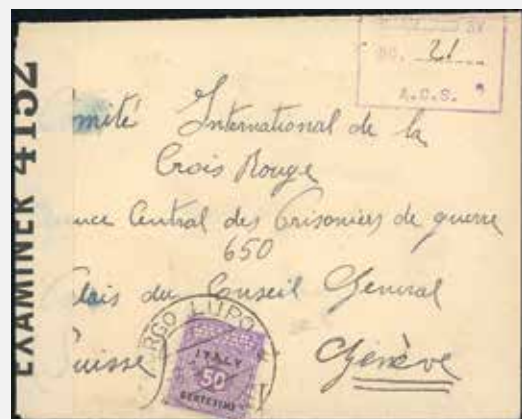 NO. 21
A.C.S.
EXAMINER 4152
mité International de la
Crois Rouge
nce Central des Prisoniers de guerre
650
lais du Conseil General
uisse Genève
RGO LUPO
ITALY
50
CENTESIMI